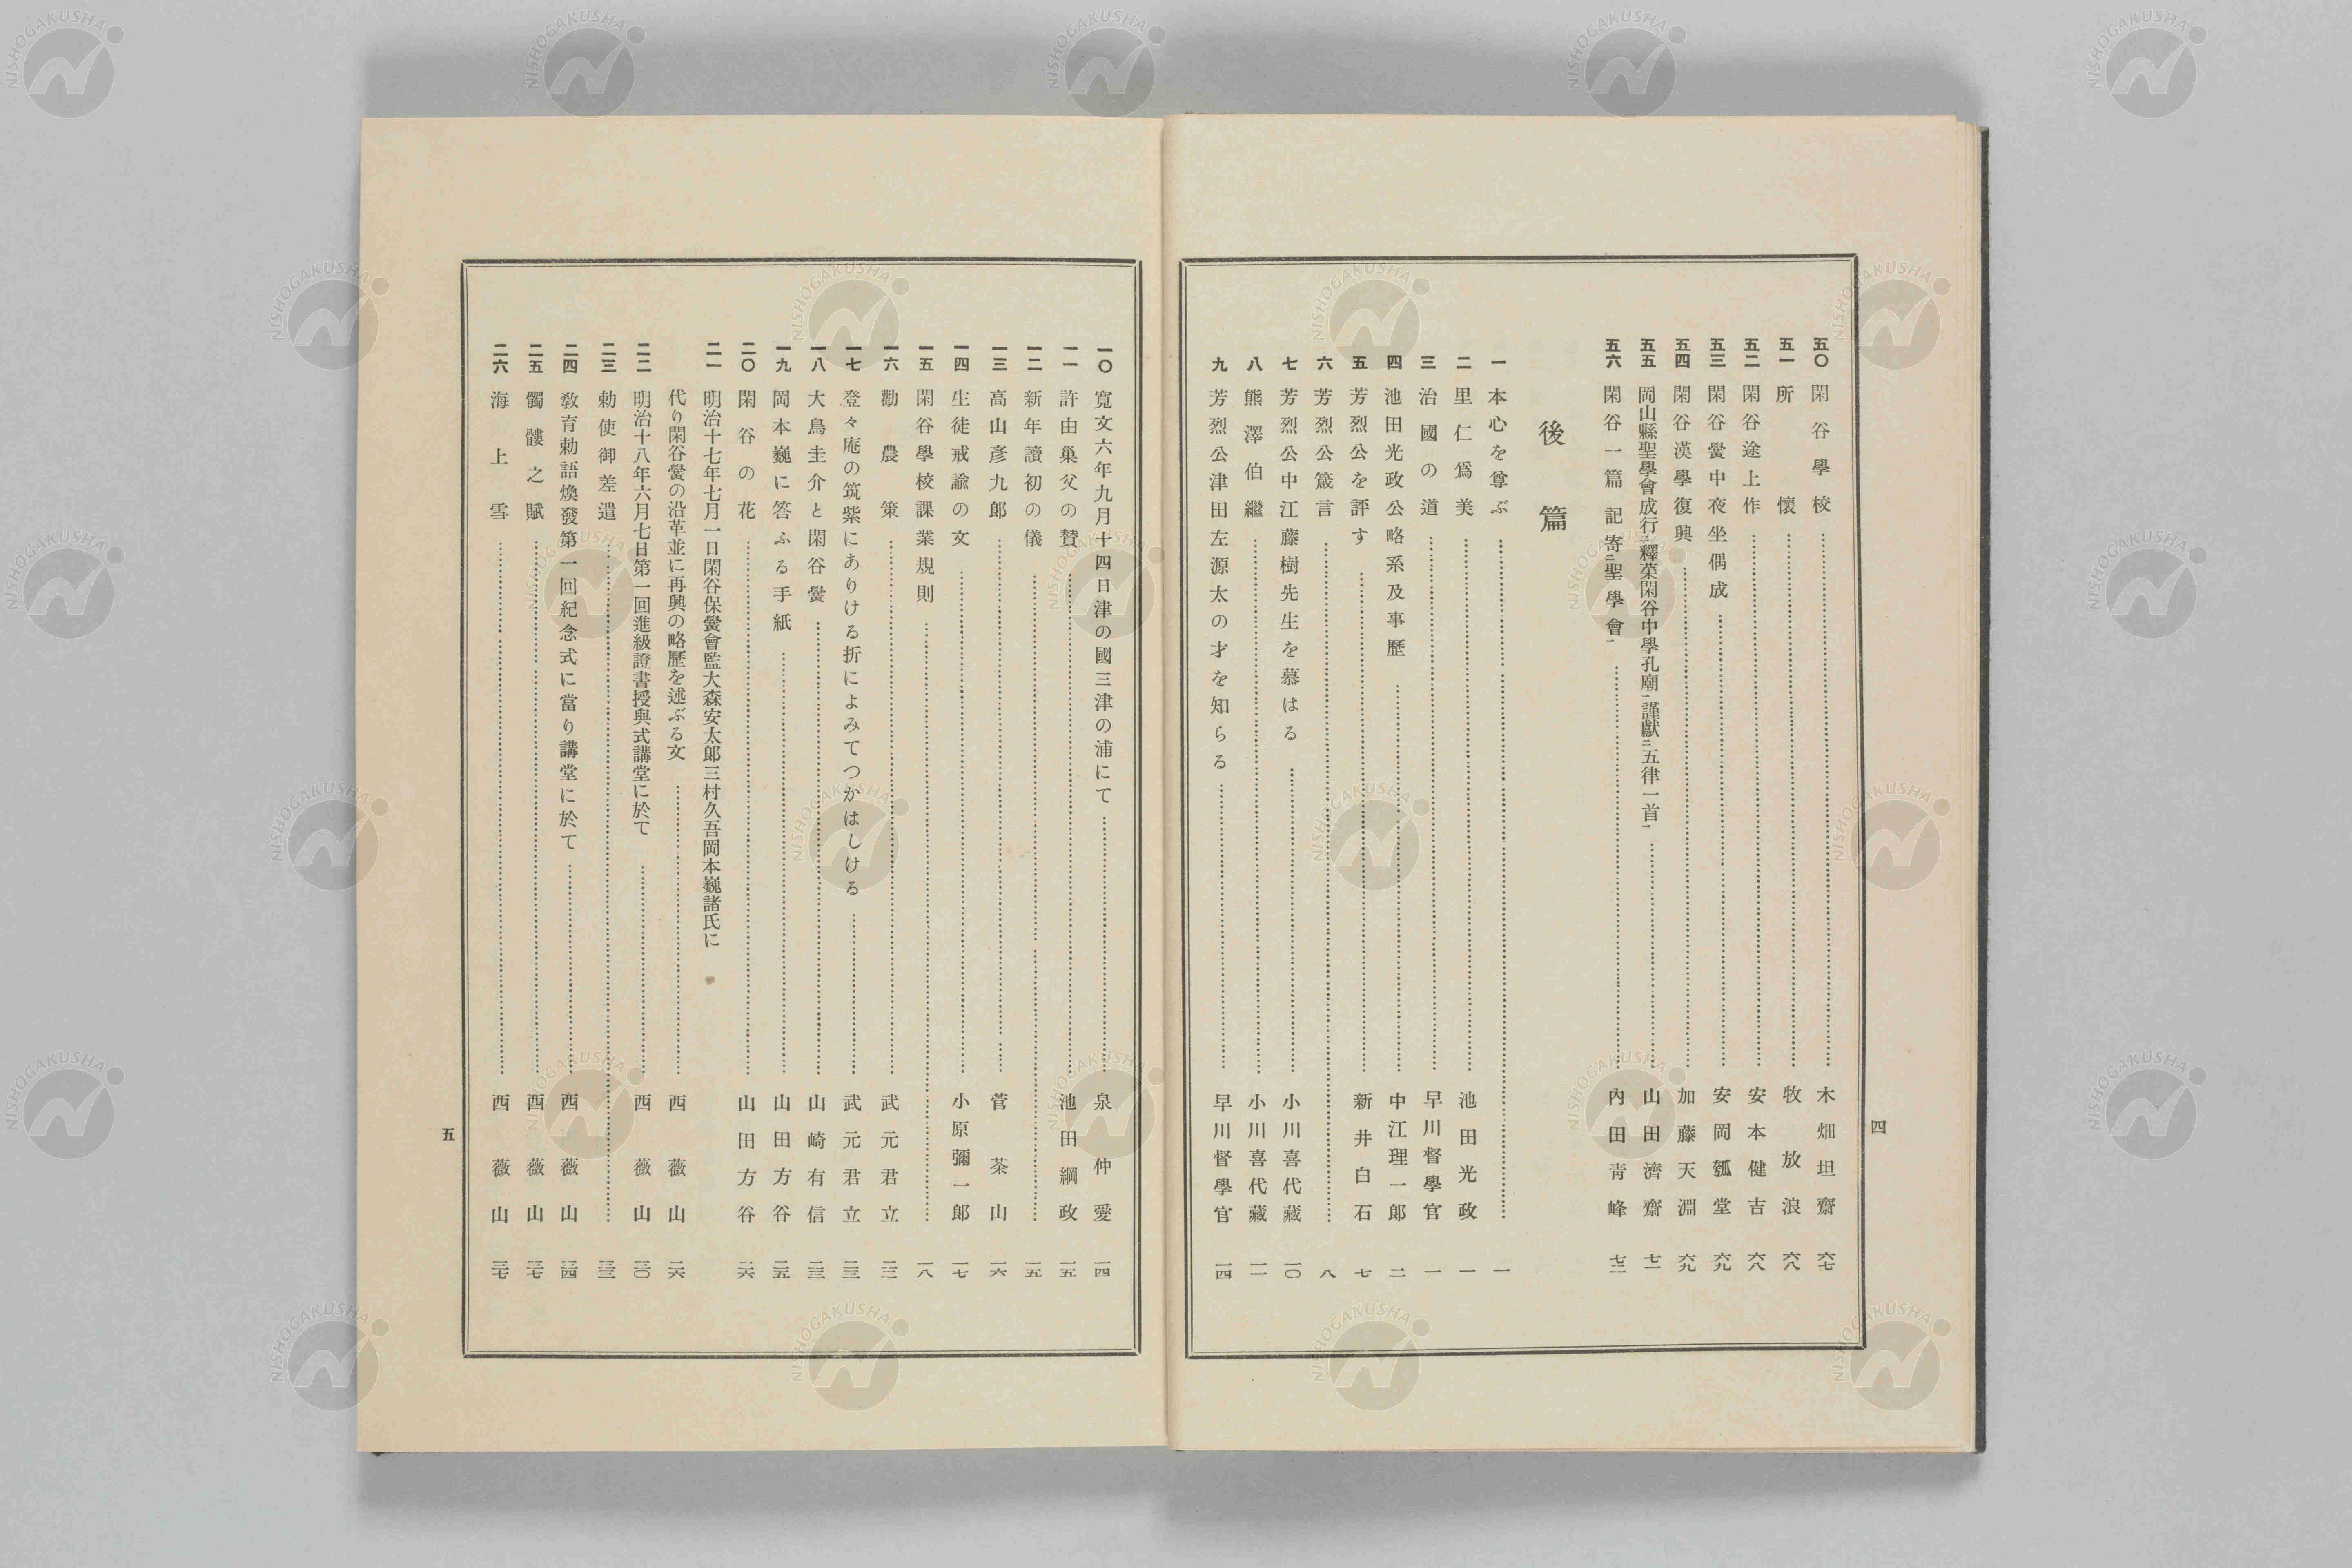 五〇 閑谷學校 木畑坦齋 六七
五一 所懷 牧放浪 六八
五二 閑谷途上作 安本健吉 六八
五三 閑谷黌中夜坐偶成 安岡瓠堂 六九
五四 閑谷漢學復興 加藤天淵 六九
五五 岡山縣聖學會成行二釋菜閑谷中學孔廟一謹獻二五律一首一 山田濟齋 七一
五六 閑谷一篇記寄二聖學會一 內田靑峰 七二
後篇
一 本心を尊ぶ 一
二 里仁爲美 池田光政 一
三 治國の道 早川督學官 一
四 池田光政公略系及事歷 中江理一郞 二
五 芳烈公を評す 新井白石 七
六 芳烈公箴言 八
七 芳烈公中江藤樹先生を慕はる 小川喜代藏 一〇
八 熊澤伯繼 小川喜代藏 一一
九 芳烈公津田左源太の才を知らる 早川督學官 一四
四
一〇 寬文六年九月十四日津の國三津の浦にて 泉仲愛 一四
一一 許由巢父の贊 池田綱政 一五
一二 新年讀初の儀 一五
一三 高山彥九郞 菅茶山 一六
一四 生徒戒諭の文 小原彌一郞 一七
一五 閑谷學校課業規則 一八
一六 勸農策 武元君立 二二
一七 登々庵の筑紫にありける折によみてつかはしける 武元君立 二三
一八 大鳥圭介と閑谷黌 山崎有信 二三
一九 岡本巍に答ふる手紙 山田方谷 二五
二〇 閑谷の花 山田方谷 二六
二一 明治十七年七月一日閑谷保黌會監大森安太郞三村久吾岡本巍諸氏に
代り閑谷黌の沿革並に再興の略歷を述ぶる文 西薇山 二六
二二 明治十八年六月七日第一回進級證書授與式講堂に於て 西薇山 三〇
二三 勅使御差遣 三三
二四 敎育勅語煥發第一回紀念式に當り講堂に於て 西薇山 三四
二五 髑髏之賦 西薇山 三七
二六 海上雪 西薇山 三七
五
NISHOGAKUSHA